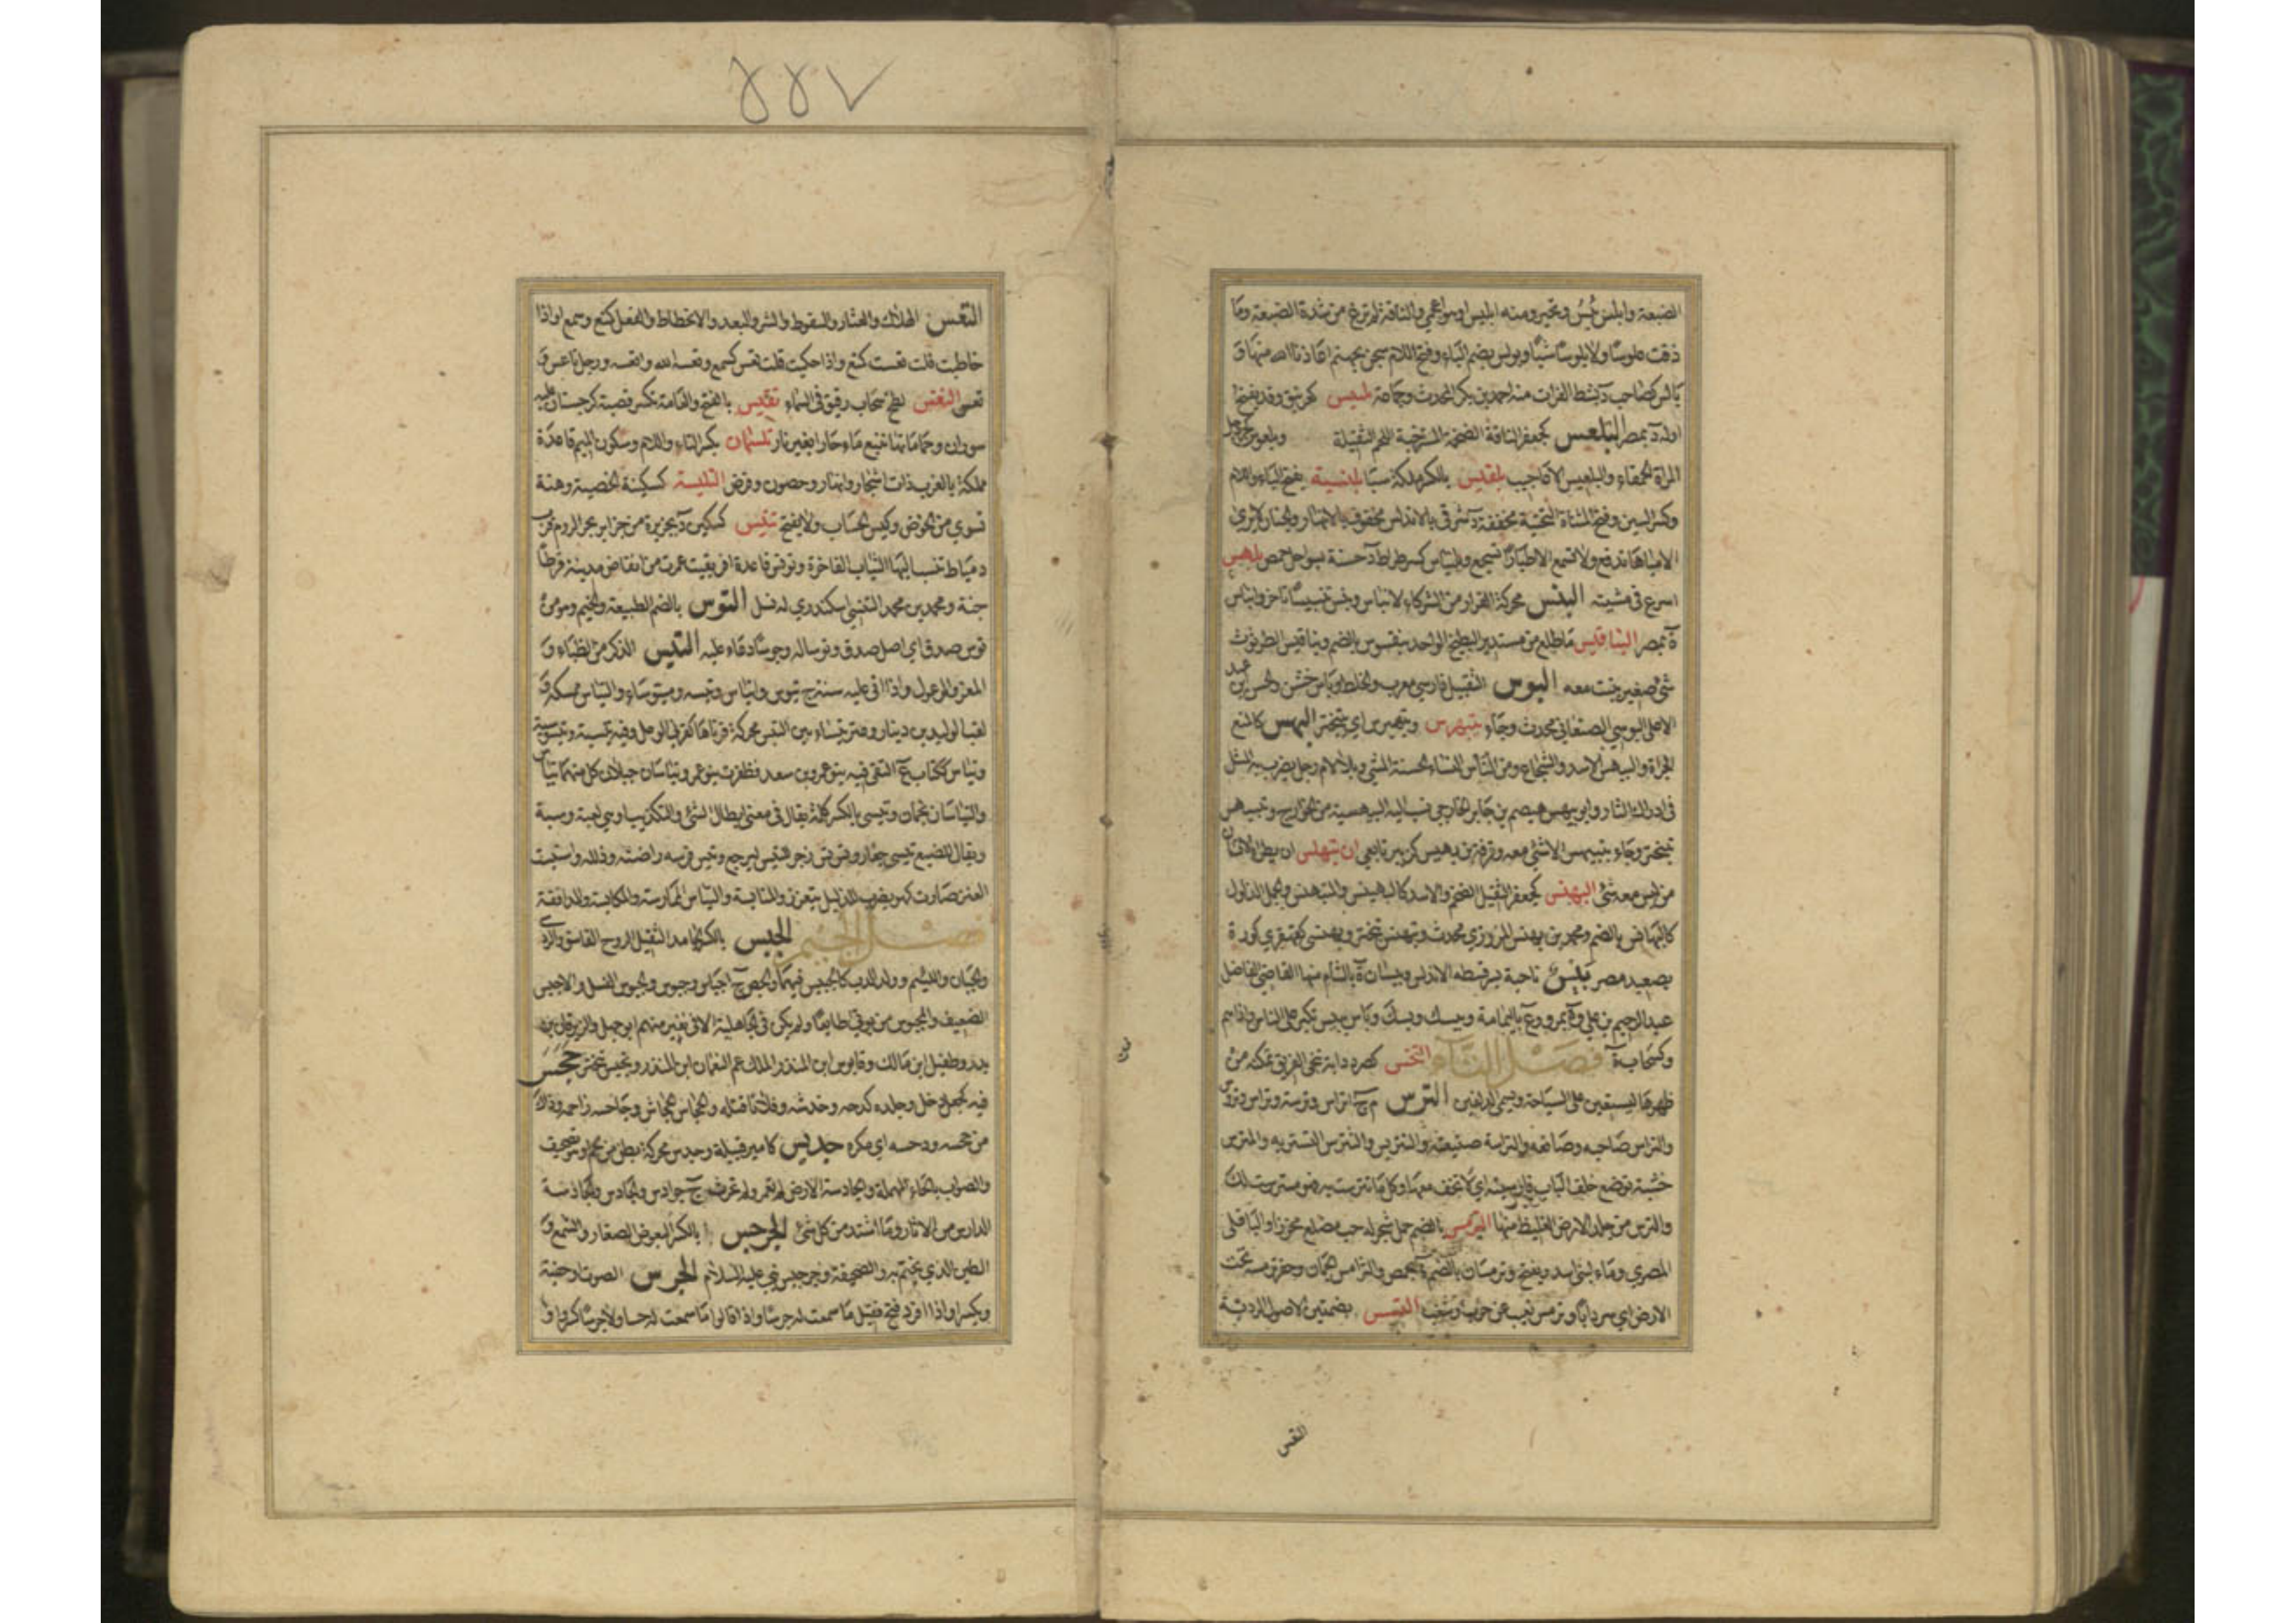 الضبعة وابلس يئس وتحير ومنه ابليس او هو اعجمي والناقة لم ترغ من شدة الضبعة وما
ذقت علوسا ولا بلوسا شيئا وبولس بضم الباء وفتح اللام سجن بجهنم اعاذنا الله منها و
بالس كصاحب د بشط الفرات منه احمد بن بكر المحدث وجماعة بلبيس كغرنيق وقد يفتح
اوله د بمصر البلعس كجعفر الناقة الضخمة المسترخية اللحم الثقيلة
المراة الحمقاء والبلعبيس الاعاجيب بلقيس بالكسر ملكة سبا بلنسية بفتح الباء واللام
وكسر السين وفتح المثناة التحتية مخففة د شرقي بالاندلس محفوف بالانهار والجنان لا ترى
الا مياها تدفع ولا تسمع الا اطيارا تسجع وبلنياس كسرطراط د حسنة بسواحل حمص بلهس
اسرع في مشيته البنس محركة الفرار من الشر كالابناس وبنس تبنيسا تاخر
ة بمصر البناقيس ما طلع من مستدير البطيخ الواحد بنقوس بالضم وبناقيس الطرثوث
شيء صغير ينبت معه البوس التقبيل فارسي معرب والخلط وباس خشن والحسن بن عبد
الاعلى البوسي الصنعاني محدث وجاء يتبهرس ويتبهيرس اي يتبختر البهس كالمنع
الجراة والبيهس الاسد والشجاع ومن النساء الحسنة المشي وبلا لام رجل يضرب به المثل
في ادراك الثار وابو بيهس هيصم بن جابر الخارجي نسب اليه البيهسية من الخوارج وتبيهس
تبختر وجاء يتبيهس لا شيء معه وفرقة بن بهيس كزبير تابعي ان يتبهلس ان يطرا الانسان
من ليس معه شيء البهنس كجعفر الثقيل الضخم والاسد كالبهنس والمتبهنس والجمل الذلول
كالبهانس بالضم ومحمد بن بهنس المروزي محدث وتبهنس تبختر وبهنسى كقهقرى كورة
بصعيد مصر بيس ناحية بسرقسطة الاندلس وبيسان ة بالشام منها القاضي الفاضل
عبد الرحيم بن علي وة بمرو وع باليمامة وبيسك ويسك وباس يبيس تكبر على الناس واذاهم
وكسحابة ة فصل التاء التخس كصرد دابة تنجي الغريق تمكنه من
ظهرها ليستعين على السباحة ويسمى الدلفين الترس م ج اتراس وترسة وتراس وتروس
والتراس صاحبه وصانعه والتراسة صنيعته والتتريس والتترس التستر به والمترس
خشبة توضع خلف الباب فارسية اي لا تخف معها وكل ما تترست به فهو مترسة لك
والترس من جلد الارض الغليظ منها الترمس بالضم حمل شجر له حب مضلع محزز او الباقلى
المصري وماء لبني اسد ويفتح وترمسان بالضم ة بحمص والترامس الجمان وحفر ترمسة تحت
الارض اي سردابا وترمس تغيب عن حرب او شغب التسس بضمتين الاصول الردية
التعس
٧٨٨
التعس الهلاك والعثار والسقوط والشر والبعد والانحطاط والفعل كمنع وسمع او اذا
خاطبت قلت تعست كمنع واذا حكيت قلت تعس كسمع وتعسه الله واتعسه ورجل تاعس و
تعس التغس لطخ سحاب رقيق في السماء تفليس بالفتح والعامة تكسر قصبة كرجستان عليه
سوران وحماماتها تنبع ماء حارا بغير نار تلمسان بكسر التاء واللام وسكون الميم قاعدة
مملكة بالغرب ذات اشجار وانهار وحصون وفرض التليسة كسكينة الخصية وهنة
تسوى من الخوص وكيس الحساب ولا يفتح تنيس كسكين د بجزيرة من جزائر بحر الروم قرب
دمياط تنسب اليها الثياب الفاخرة وتونس قاعدة افريقية عمرت من انقاض مدينة قرطا
جنة ومحمد بن محمد التنسي اسكندري له نسل التوس بالضم الطبيعة والخيم وهو من
توس صدق اي اصل صدق وتوسا له وجوسا دعاء عليه التيس الذكر من الظباء و
المعز والوعول او اذا اتى عليه سنة ج تيوس واتياس وتيسة ومتيوساء والتياس ممسكه و
لقب الوليد بن دينار وعنز تيساء بين التيس محركة قرناها كقرني الوعل وفيه تيسية وتيسوسية
وتياس ككتاب ع التقى فيه بنو عمرو وبن سعد فظفرت بنو عمر وتياسان جبلان كل منهما تياس
والتياسان نجمان وتيسي بالكسر كلمة يقال في معنى ابطال الشيء والتكذيب او هي لعبة وسبة
ويقال للضبع تيسي جعار وتس تس زجر للتيس ليرجع وتيس فرسه راضه وذلله واستتيست
العنز صارت كهو يضرب للذليل يتعزز والمتايسة والتياس الممارسة والمكايسة والمدافعة
فصل الجيم الجبس بالكسر الجامد الثقيل الروح الفاسق والردي
والجبان واللئيم وولد الدب كالجبيس فيهما والجص ج اجباس وجبوس والجبوس الفسل والاجبس
الضعيف والمجبوس من يوتى طايعا ولم يكن في الجاهلية الا في نفير منهم ابو جهل والزبرقان بن
بدر وطفيل ابن مالك وقابوس ابن المنذر الملك عم النعمان ابن المنذر وتجبس تبختر جحس
فيه كجعل دخل وجلده كدحه وخدشه وفلانا قتله والجحاس الجحاش وجاحسه زاحمه وذاك
من جحسه ودحسه اي مكره جديس كامير قبيلة وجدس محركة بطن من لخم او هو تصحيف
والصواب بالحاء المهملة والجادسة الارض لم تعمر ولم تحرث ج جوادس والجادس والجادسة
الدارس من الاثار وما اشتد من كل شيء الجرجس بالكسر البعوض الصغار والشمع و
الطين الذي يختم به والصحيفة وجرجيس نبي عليه السلام الجرس الصوت او خفيه
ويكسر او اذا افرد فتح فقيل ما سمعت له جرسا واذا قالوا ما سمعت له حسا ولا جرسا كسروا و